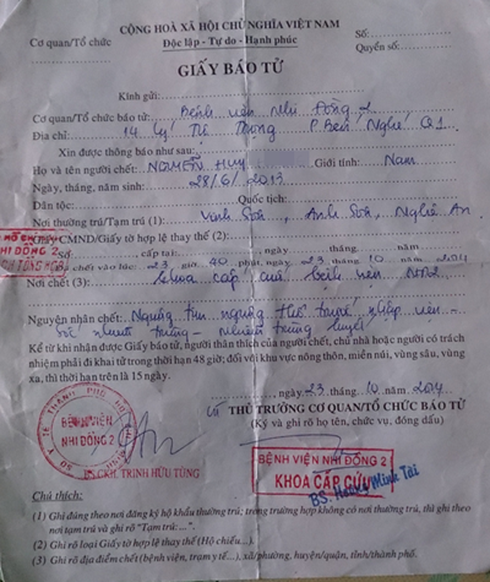 CỘNG HOÀ XÃ HỘI CHỦ NGHĨA VIỆT NAM
Cơ quan/Tổ chức Độc lập - Tự do - Hạnh phúc Số:
Quyển số:
GIẤY BÁO TỬ
Kính gửi:
Cơ quan/Tổ chức báo tử: Bệnh viện Nhi Đồng 2
Địa chỉ: 14 Lý Tự Trọng P Bến Nghé Q1
Xin được thông báo như sau:
Họ và tên người chết: NGUYỄN HUY Giới tính: Nam
Ngày, tháng, năm sinh: 28/6/2013
Dân tộc: Quốc tịch:
Nơi thường trú/Tạm trú (1): Vĩnh Sơn, Anh Sơn, Nghệ An
Giấy CMND/Giấy tờ hợp lệ thay thế (2):
Số cấp tại: ngày tháng năm
Đã chết vào lúc: 23 giờ 40 phút, ngày 23 tháng 10 năm 2014
Nơi chết (3): Khoa cấp cứu bệnh viện NĐ2
Nguyên nhân chết: Ngưng tim ngưng thở trước nhập viện -
Sốc nhiễm trùng - Nhiễm trùng huyết
Kể từ khi nhận được Giấy báo tử, người thân thích của người chết, chủ nhà hoặc người có trách
nhiệm phải đi khai tử trong thời hạn 48 giờ; đối với khu vực nông thôn, miền núi, vùng sâu, vùng
xa, thì thời hạn trên là 15 ngày.
ngày 23 tháng 10 năm 2014
THỦ TRƯỞNG CƠ QUAN/TỔ CHỨC BÁO TỬ
(Ký và ghi rõ họ tên, chức vụ, đóng dấu)
BỆNH VIỆN
NHI ĐỒNG 2
BS.CKII. TRỊNH HỮU TÙNG
BỆNH VIỆN NHI ĐỒNG 2
KHOA CẤP CỨU
BS. Hoàng Minh Tài
Chú thích:
(1) Ghi đúng theo nơi đăng ký hộ khẩu thường trú; trong trường hợp không có nơi thường trú, thì ghi theo
nơi tạm trú và ghi rõ "Tạm trú:...".
(2) Ghi rõ loại Giấy tờ hợp lệ thay thế (Hộ chiếu...).
(3) Ghi rõ địa điểm chết (bệnh viện, trạm y tế...), xã/phường, huyện/quận, tỉnh/thành phố.